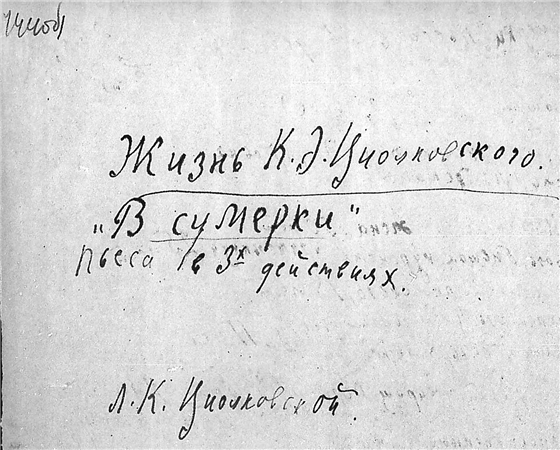 Жизнь К.Э.Циолковского.
„В сумерки"
Пьеса в 3х действиях.
Л.К. Циолковской.